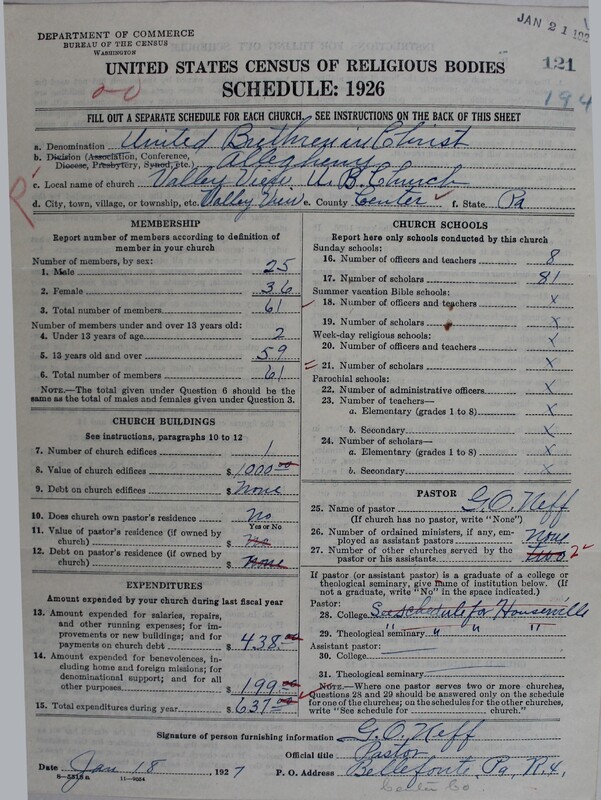 JAN 21 192
DEPARTMENT OF COMMERCE
BUREAU OF THE CENSUS
WASHINGTON
UNITED STATES CENSUS OF RELIGIOUS BODIES
SCHEDULE: 1926
121
194
FILL OUT A SEPARATE SCHEDULE FOR EACH CHURCH. SEE INSTRUCTIONS ON THE BACK OF THIS SHEET
a. Denomination United Brethren in Christ
b. Division (Association, Conference, Diocese, Presbytery, Synod, etc.) Allegheny
c. Local name of church Valley View U. B. Church
d. City, town, village, or township, etc. Valley View e. County Center f. State Pa
MEMBERSHIP
Report number of members according to definition of
member in your church
Number of members, by sex:
1. Male 25
2. Female 36
3. Total number of members 61
Number of members under and over 13 years old:
4. Under 13 years of age 2
5. 13 years old and over 59
6. Total number of members 61
NOTE.—The total given under Question 6 should be
the same as the total of males and females given under Question 3.
CHURCH BUILDINGS
See instructions, paragraphs 10 to 12
7. Number of church edifices 1
8. Value of church edifices $ 1000.00
9. Debt on church edifices $ None
10. Does church own pastor's residence No
Yes or No
11. Value of pastor's residence (if owned by
church) $
12. Debt on pastor's residence (if owned by
church) $ None
EXPENDITURES
Amount expended by your church during last fiscal year
13. Amount expended for salaries, repairs,
and other running expenses; for im-
provements or new buildings; and for
payments on church debt $ 438.00
14. Amount expended for benevolences, in-
cluding home and foreign missions; for
denominational support; and for all
other purposes $ 199.00
15. Total expenditures during year $ 637.00
CHURCH SCHOOLS
Report here only schools conducted by this church
Sunday schools:
16. Number of officers and teachers 8
17. Number of scholars 81
Summer vacation Bible schools:
18. Number of officers and teachers x
19. Number of scholars x
Week-day religious schools:
20. Number of officers and teachers x
21. Number of scholars x
Parochial schools:
22. Number of administrative officers x
23. Number of teachers—
a. Elementary (grades 1 to 8) x
b. Secondary x
24. Number of scholars—
a. Elementary (grades 1 to 8) x
b. Secondary x
PASTOR
25. Name of pastor G. O. Neff
(If church has no pastor, write "None")
26. Number of ordained ministers, if any, em-
ployed as assistant pastors None
27. Number of other churches served by the
pastor or his assistants Two 2
If pastor (or assistant pastor) is a graduate of a college or
theological seminary, give name of institution below. (If
not a graduate, write "No" in the space indicated.)
Pastor:
28. College See schedule for Houserville
29. Theological seminary " " "
Assistant pastor:
30. College
31. Theological seminary
NOTE.—Where one pastor serves two or more churches,
Questions 28 and 29 should be answered only on the schedule
for one of the churches; on the schedules for the other churches,
write "See schedule for ........ church."
Signature of person furnishing information G. O. Neff
Official title Pastor
Date Jan 18, 1927 P. O. Address Bellefonte Pa, R.4,
11—9264
Center Co.